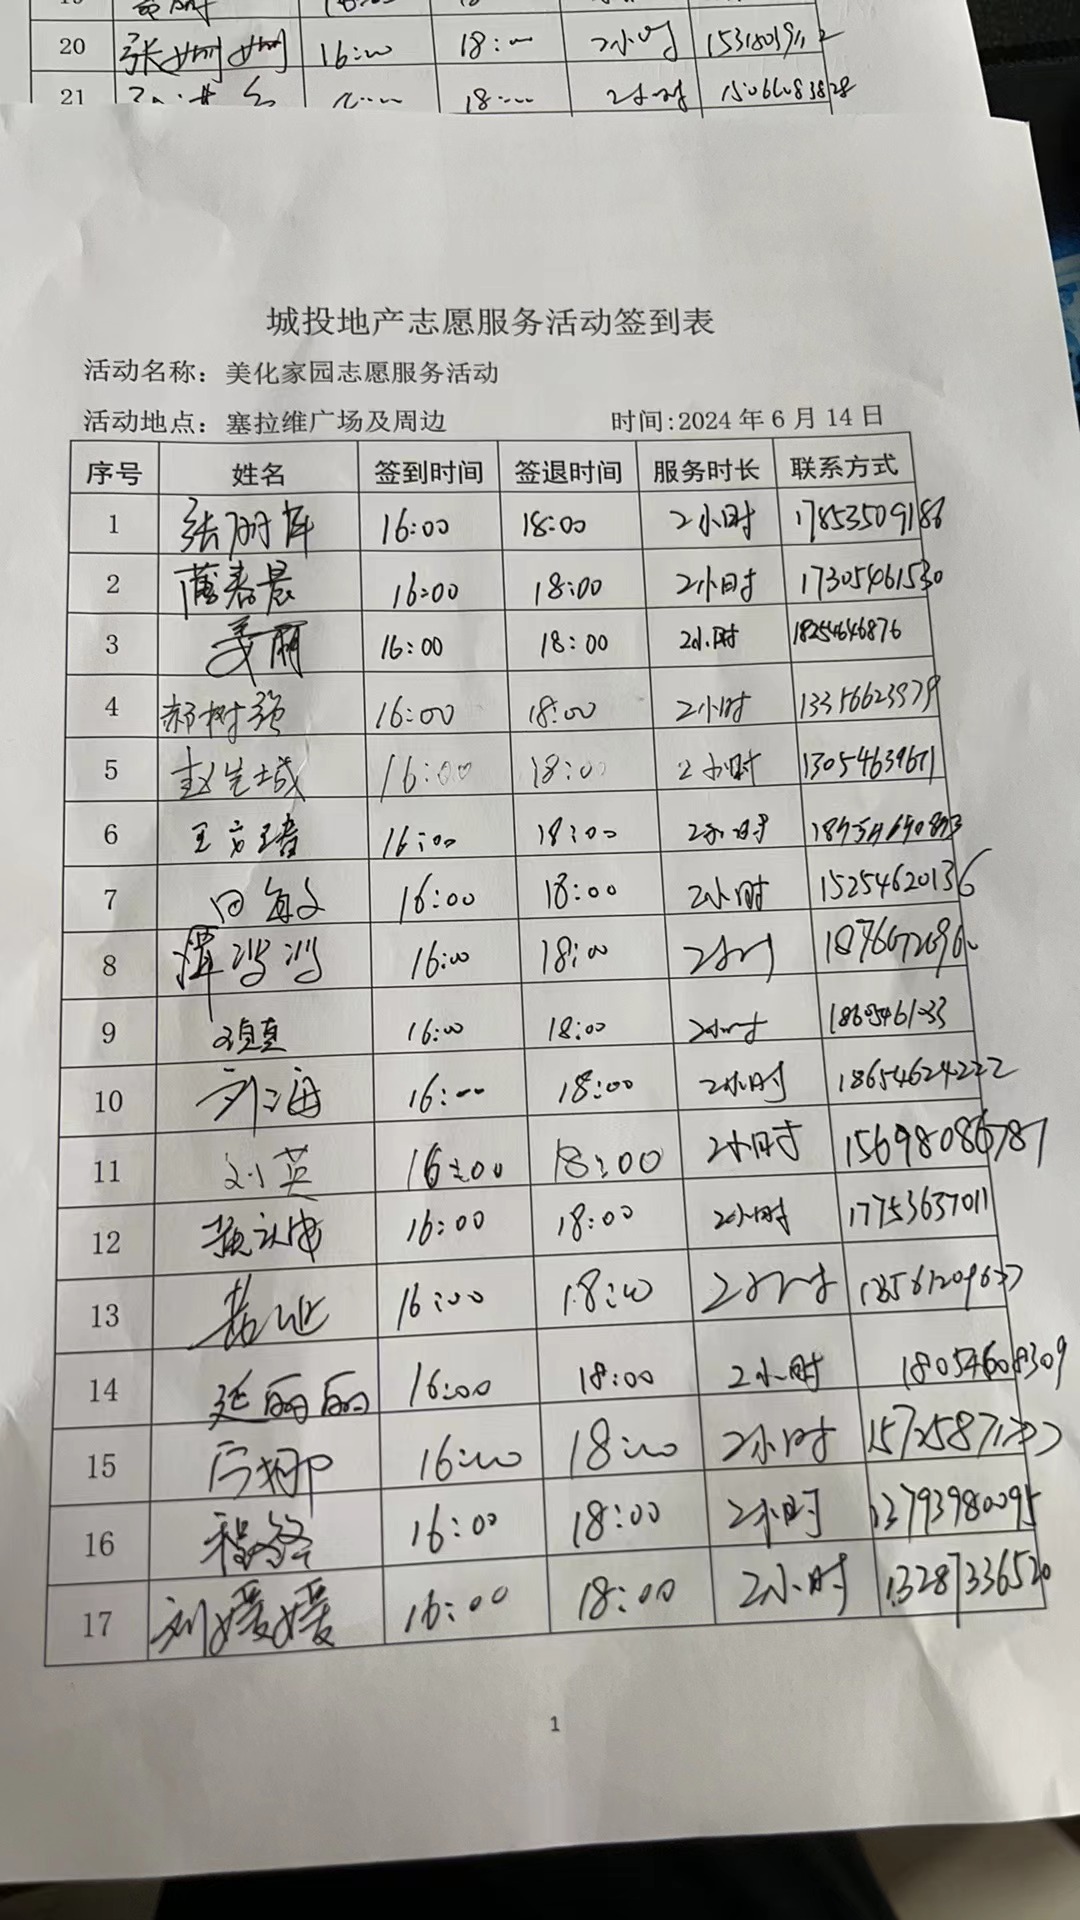 20 张姗姗 16:00 18:00 2小时
21 18:00 2小时 15066083828
城投地产志愿服务活动签到表
活动名称：美化家园志愿服务活动
活动地点：塞拉维广场及周边 时间:2024年6月14日
序号 姓名 签到时间 签退时间 服务时长 联系方式
1 16:00 18:00 2小时 17853509186
2 16:00 18:00 2小时 17305461530
3 姜丽 16:00 18:00 2小时 18254646876
4 郝树强 16:00 18:00 2小时 13356623979
5 16:00 18:00 2小时 13054639671
6 16:00 18:00 2小时
7 16:00 18:00 2小时 15254620136
8 16:00 18:00 2小时
9 16:00 18:00 2小时
10 刘海 16:00 18:00 2小时 18654624222
11 刘英 16:00 18:00 2小时 15698086787
12 16:00 18:00 2小时 17753637011
13 16:00 18:00 2小时
14 延丽丽 16:00 18:00 2小时 18054608309
15 16:00 18:00 2小时
16 16:00 18:00 2小时 13793980095
17 刘媛媛 16:00 18:00 2小时 13287336520
1